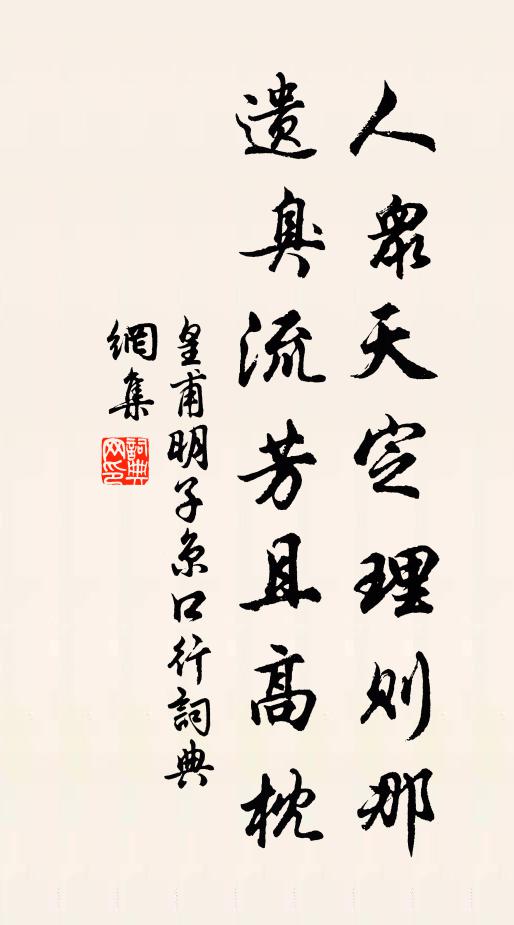 人眾天定理則那
遺臭流芳且高枕
皇甫明子京口行詞典
網集
詞典網印